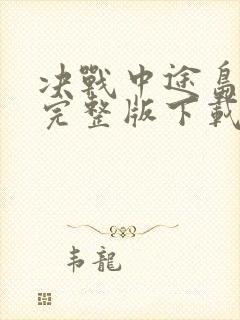 决戰中途島
完整版下載
韦龍